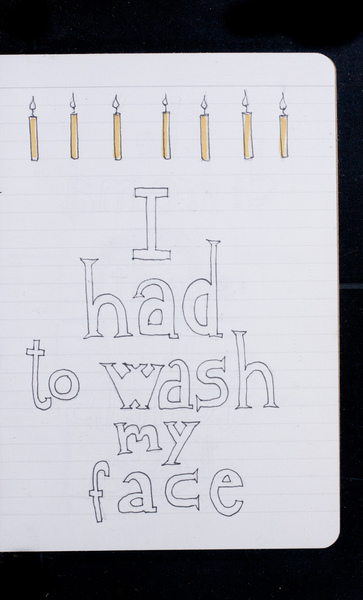 I
had
to wash
my
face